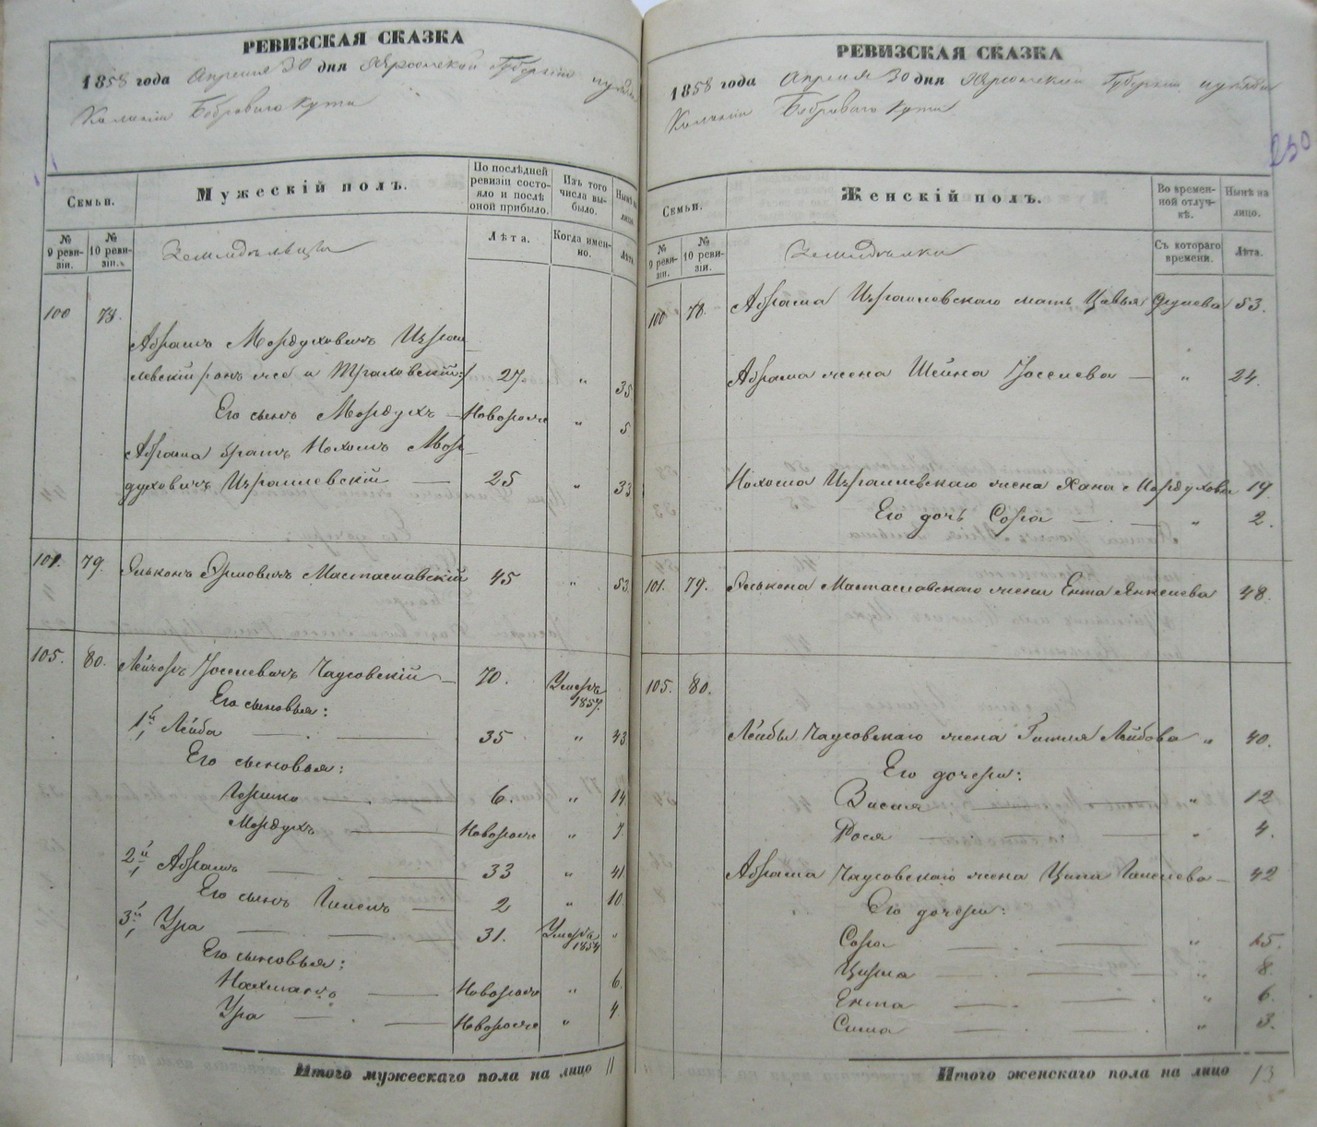 РЕВИЗСКАЯ СКАЗКА
1858 года Апреля 30 дня Херсонской Губернии
Колонии Боброваго Кута
Семьи.
Мужескій полъ.
По послѣдней ревизіи состояло и послѣ оной прибыло.
Изъ того числа выбыло.
Нынѣ на лицо.
№ 9 ревизіи.
№ 10 ревизіи.
Земледѣльцы
Лѣта.
Когда именно.
Лѣта.
100 78.
Абрамъ Мордуховичъ Израи-
левскій 27. „ 35
Его сынъ Мордухъ — Новорож „ 5
Абрама братъ Нохомъ Мор-
духовичъ Израилевскій — 25 „ 33
101. 79. Мастиславскій 45 „ 53
105. 80. Лейзеръ Іоселевичъ Чаусовскій — 70. Умеръ 1857.
Его сыновья:
1й Лейба — 35 „ 43
Его сыновья:
Гершко — 6. „ 14
Мордухъ — Новорож „ 7
2й Абрамъ — 33 „ 41
Его сынъ — 2 „ 10
3й Ура — 31. Умеръ 1854 „
Его сыновья:
Нахманъ — Новорож „ 6.
Ура — Новорож „ 4.
Итого мужескаго пола на лицо 11
РЕВИЗСКАЯ СКАЗКА
1858 года Апреля 30 дня Херсонской Губернии
Колонии Боброваго Кута
250
Семьи.
Женскій полъ.
Во временной отлучкѣ.
Нынѣ на лицо.
№ 9 ревизіи.
№ 10 ревизіи.
Земледѣлки
Съ котораго времени.
Лѣта.
100 78. Абрама Израилевскаго мать Цавья 53.
Абрама жена Шейна Іоселева — „ 24.
Нохома Израилевскаго жена Хана Мордухова 19
Его дочь Сора — „ 2.
101. 79. Мастиславскаго жена Ента Янкелева 48.
105. 80.
Лейбы Чаусовскаго жена Лейбова „ 40.
Его дочери:
— „ 12
Рося — „ 4.
Абрама Чаусовскаго жена Ципа — 42
Его дочери:
Сора — „ 15.
— „ 8.
Ента — „ 6.
Сима — „ 3.
Итого женскаго пола на лицо 13